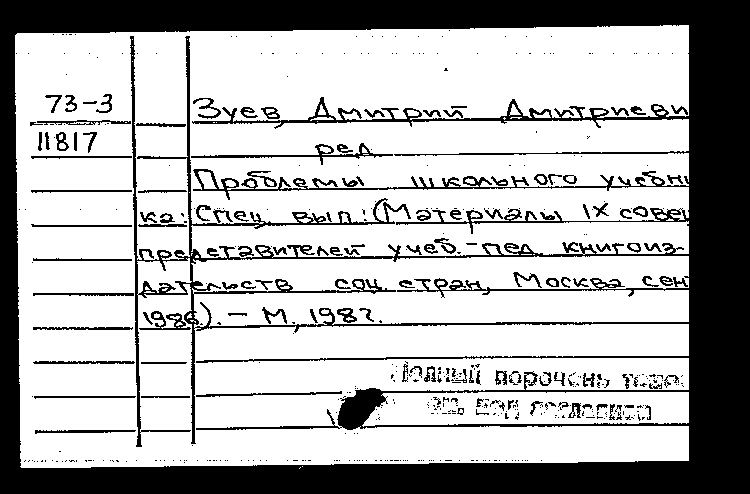 73-3
11817
Зуев, Дмитрий Дмитриеви
ред.
Проблемы школьного учебни
ка: Спец. вып.: (Материалы IX совещ
представителей учеб.-пед. книгоиз-
дательств соц. стран, Москва, сент
1986). - М., 1987.
Полный перечень
см. под заглавием